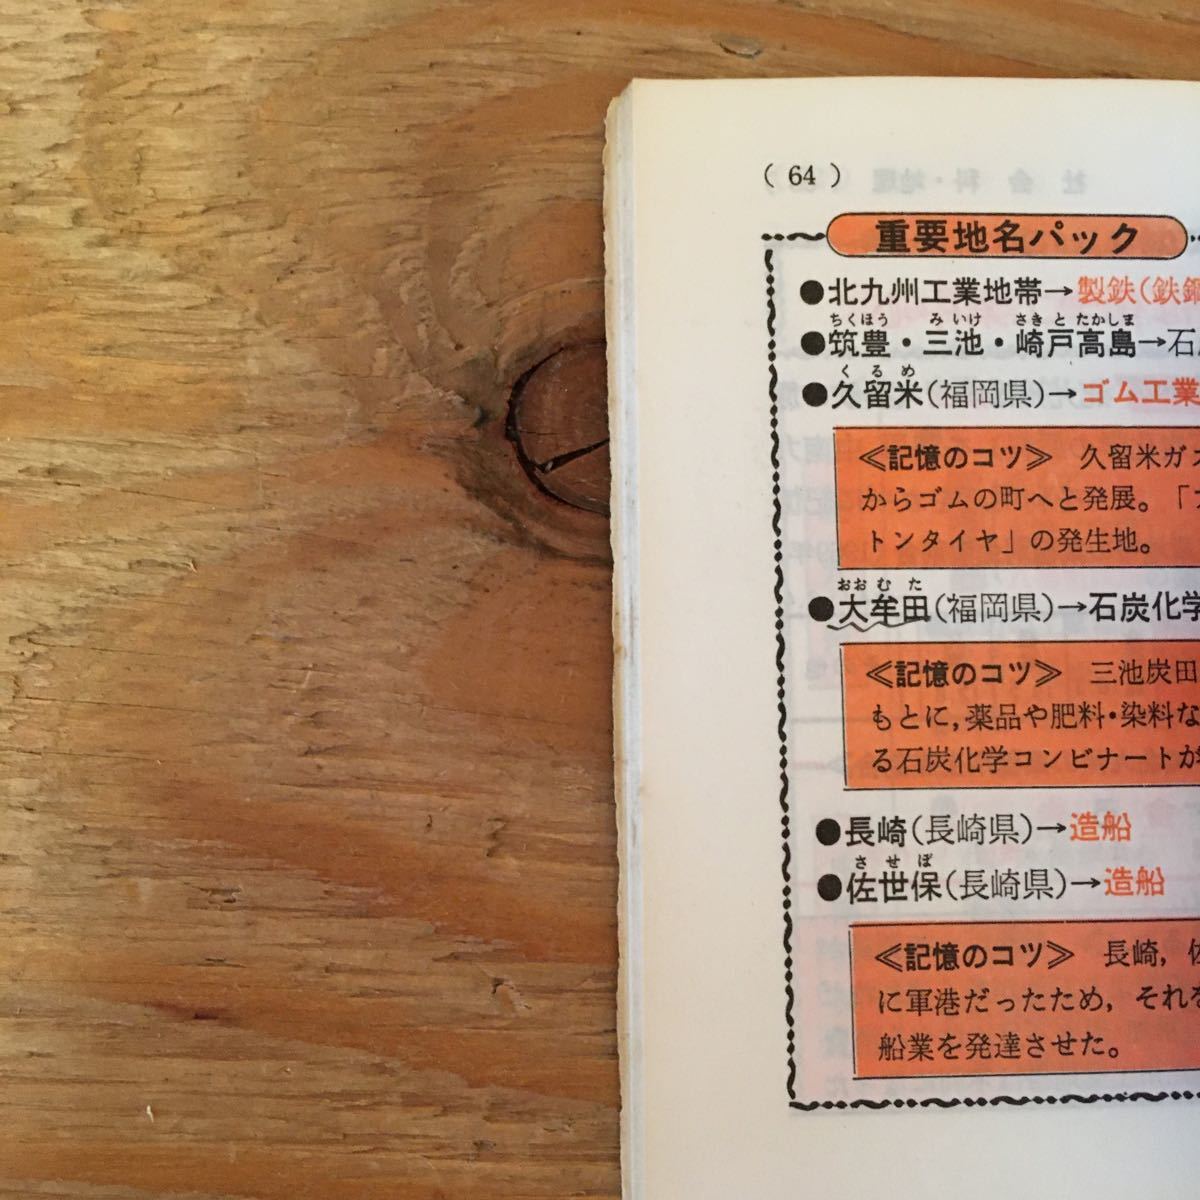 ( 64 )
重要地名パック
●北九州工業地帯→製鉄(鉄鋼
ちくほう みいけ さきと たかしま
●筑豊・三池・崎戸高島→石
くるめ
●久留米(福岡県)→ゴム工業
≪記憶のコツ≫ 久留米ガ
からゴムの町へと発展。「
トンタイヤ」の発生地。
おおむた
●大牟田(福岡県)→石炭化学
≪記憶のコツ≫ 三池炭田
もとに,薬品や肥料・染料な
る石炭化学コンビナートが
●長崎(長崎県)→造船
させぼ
●佐世保(長崎県)→造船
≪記憶のコツ≫ 長崎, 佐
に軍港だったため, それを
船業を発達させた。